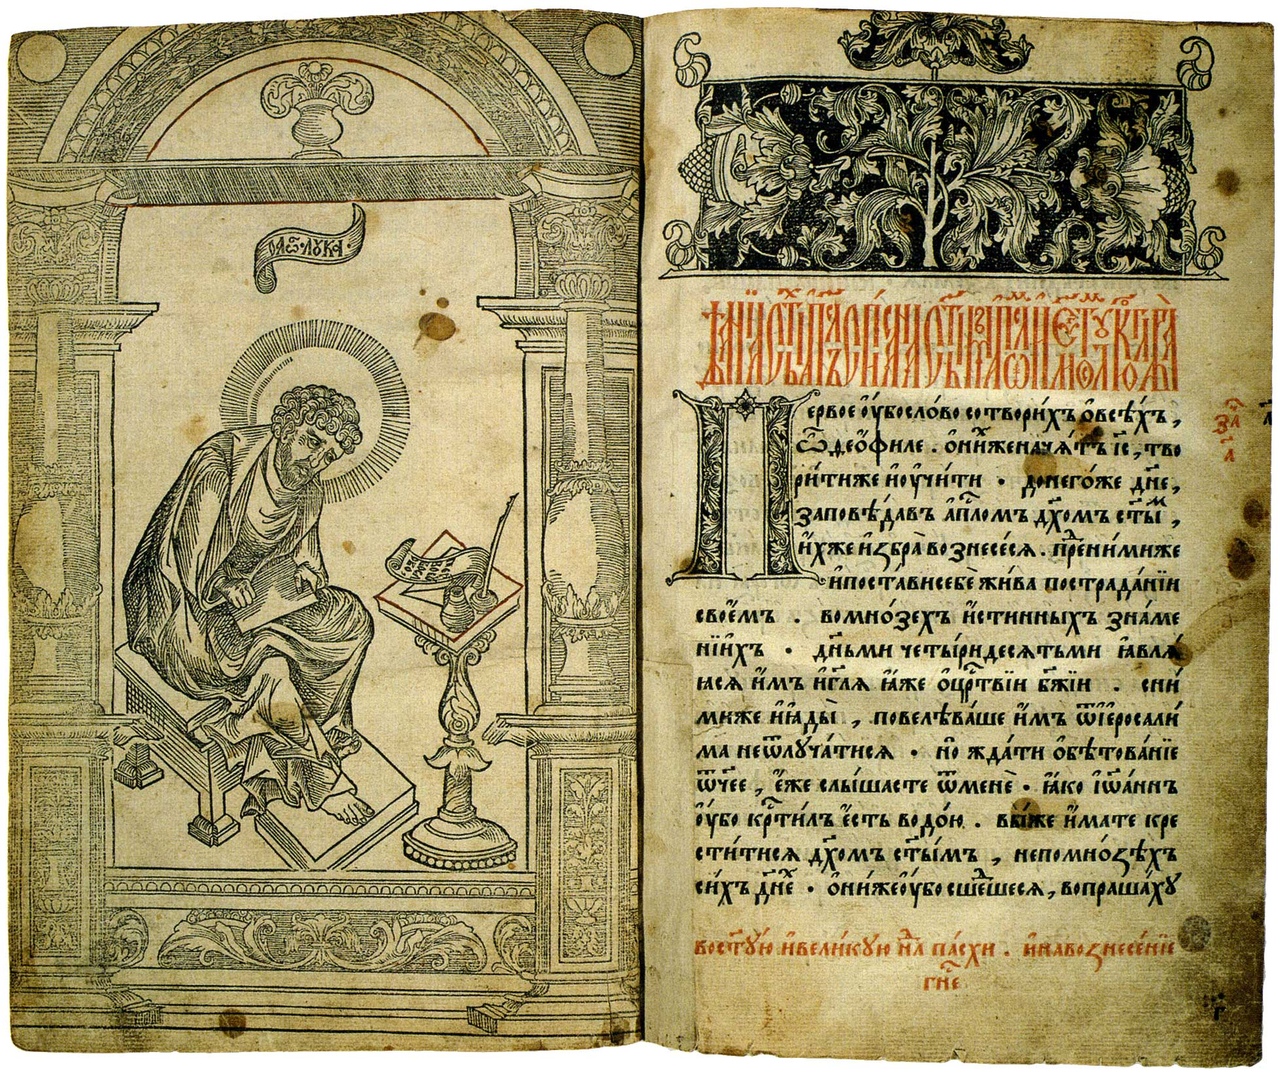 ѻа҃ѿ· лꙋка·
дѣѧнїѧ ст҃ы́хъ а҆пⷭ҇лъ
Первое ᲂу҆́бо сло́во сотвори́хъ ѻ҆ всѣ́хъ,
ѽ део́филе . ѻ҆ ни́хже нача́тъ і҆с҃, тво
ри́тиже и҆ ᲂу҆чи́ти · до него́же дн҃е,
заповѣ́давъ а҆пⷭ҇ломъ дх҃омъ ст҃ы́мъ,
и҆́хже и҆збра̀ вознесе́сѧ . пре́дни́миже
и҆ поста́ви себѐ жи́ва по страда́нїи
свое́мъ . во мно́зехъ и҆́стинныхъ зна́ме
нїи҆хъ · дн҃ьми четы́ридесѧтьми ꙗ҆влѧ́
ꙗсѧ и҆̀мъ и҆ гл҃ѧ ꙗ҆́же ѻ҆ црⷭ҇твїи бж҃їи . сни́
миже и҆ ꙗ҆ды̀ , повелѣва́ше и҆̀мъ ѿ і҆еросали́
ма не ѿлꙋча́тисѧ · но жда́ти ѻ҆бѣтова́нїе
ѿч҃ее , е҆́же слы́шасте ѿ менѐ · ꙗ҆́ко і҆ѡа́ннъ
ᲂу҆́бо крⷭ҇ти́лъ є҆́сть водо́ю . вы́же и҆́мате кре
сти́тисѧ дх҃омъ ст҃ы́мъ , не по мно́ѕѣхъ
си́хъ дн҃еⷯ · ѻ҆ни́же ᲂу҆́бо сше́дшесѧ , вопраша́хꙋ
во ст҃ꙋ́ю и҆ вели́кꙋю нлⷣѧ па́схи . и҆ на вознесе́нїе
гн҃е
за҃ч
а҃
г